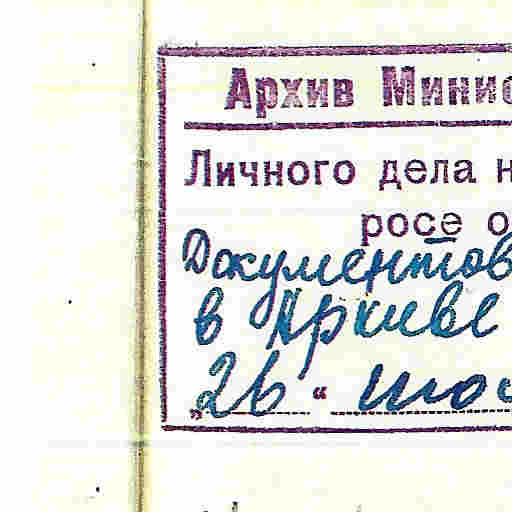 Архив Минис
Личного дела н
росе о
Документов
в Архиве
„26“ июн